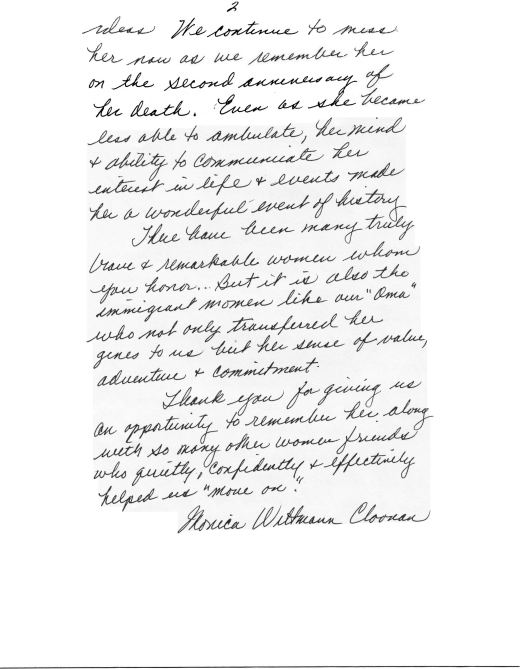 2
ideas We continue to miss
her now as we remember her
on the second anniversary of
her death. Even as she became
less able to ambulate, her mind
& ability to communicate her
interest in life & events made
her a wonderful event of history
There have been many truly
brave & remarkable women whom
you honor... But it is also the
immigrant women like our "Oma"
who not only transferred her
genes to us but her sense of value,
adventure & commitment.
Thank you for giving us
an opportunity to remember her along
with so many other women friends
who quietly, confidently & effectively
helped us "move on".
Monica Wittmann Cloonan